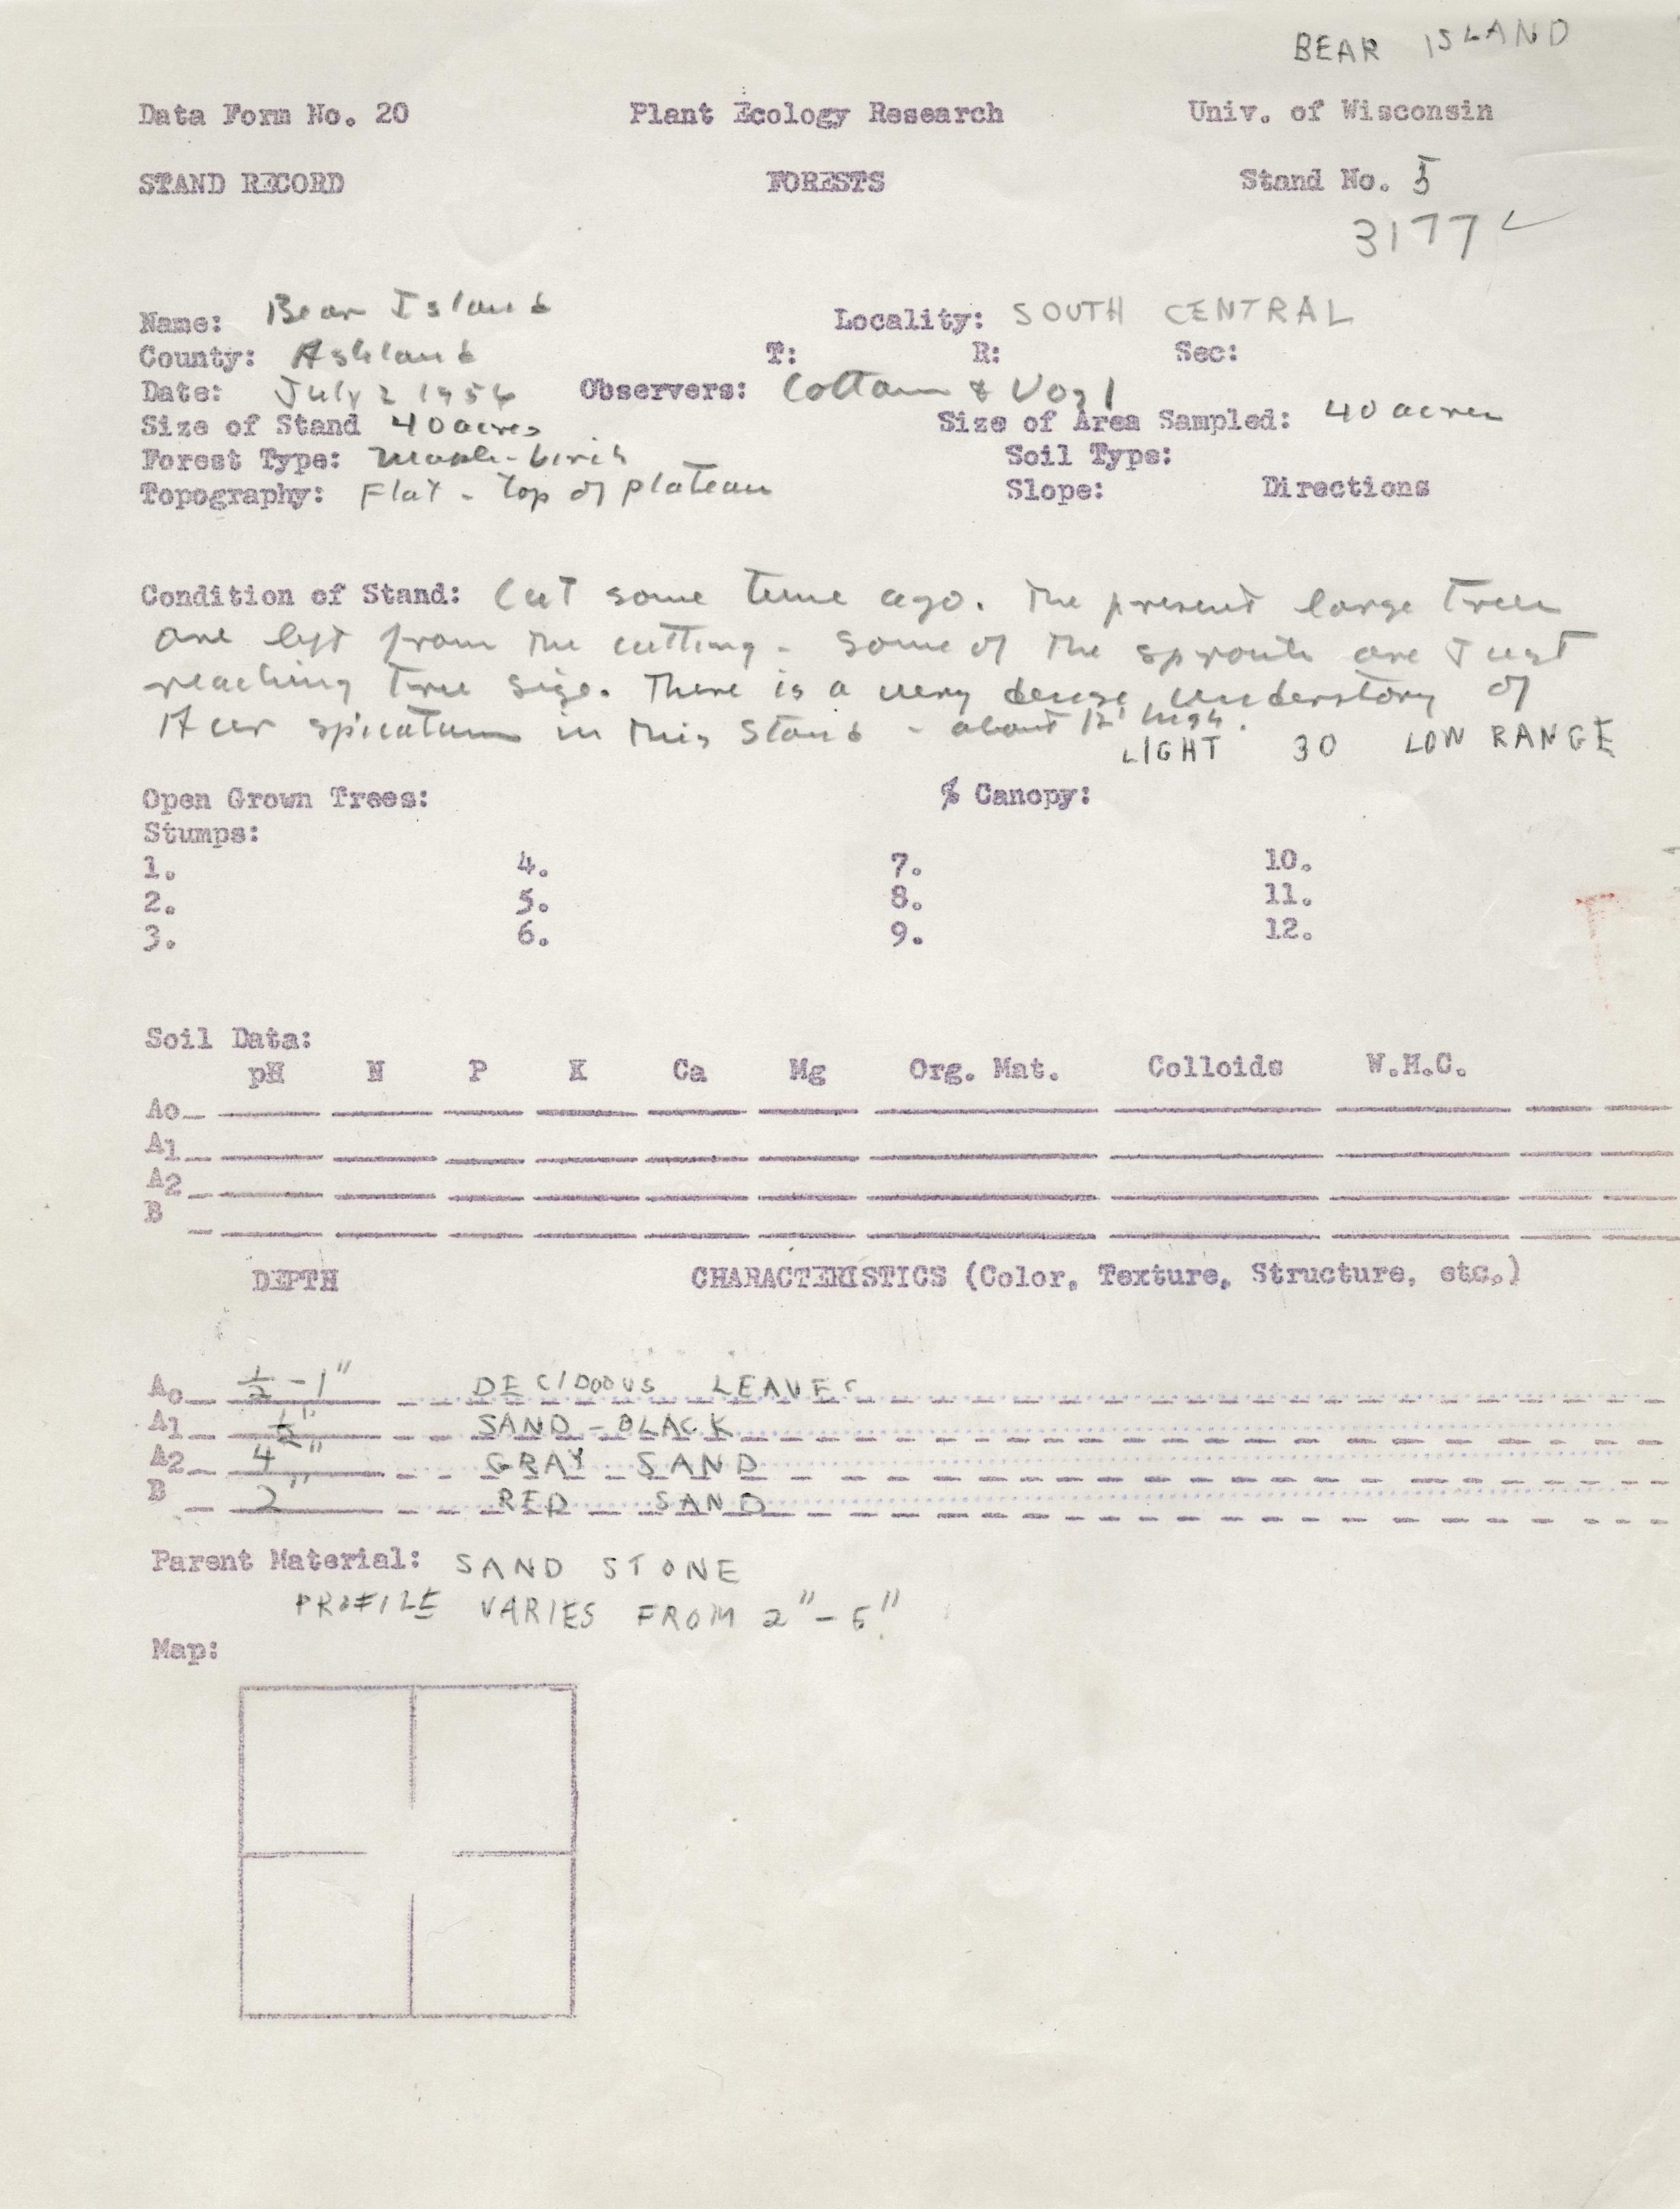 BEAR ISLAND
Data Form No. 20 Plant Ecology Research Univ. of Wisconsin
STAND RECORD FORESTS Stand No. 5
3177 ✓
Name: Bear Island Locality: SOUTH CENTRAL
County: Ashland T: R: Sec:
Date: July 2 1956 Observers: Cottam & Vogl
Size of Stand 40 acres Size of Area Sampled: 40 acres
Forest Type: Maple-birch Soil Type:
Topography: Flat - top of plateau Slope: Directions
Condition of Stand: Cut some time ago. The present large trees
are left from the cutting - some of the sprouts are just
reaching tree size. There is a very dense understory of
Acer spicatum in this stand - about 12' high.
LIGHT 30 LOW RANGE
Open Grown Trees: % Canopy:
Stumps:
1. 4. 7. 10.
2. 5. 8. 11.
3. 6. 9. 12.
Soil Data:
pH N P K Ca Mg Org. Mat. Colloids W.H.C.
Ao
A1
A2
B
DEPTH CHARACTERISTICS (Color, Texture, Structure, etc.)
Ao ½ - 1" DECIDOOUS LEAVES
A1 ½" SAND - BLACK
A2 4" GRAY SAND
B 2" RED SAND
Parent Material: SAND STONE
PROFILE VARIES FROM 2" -
Map: